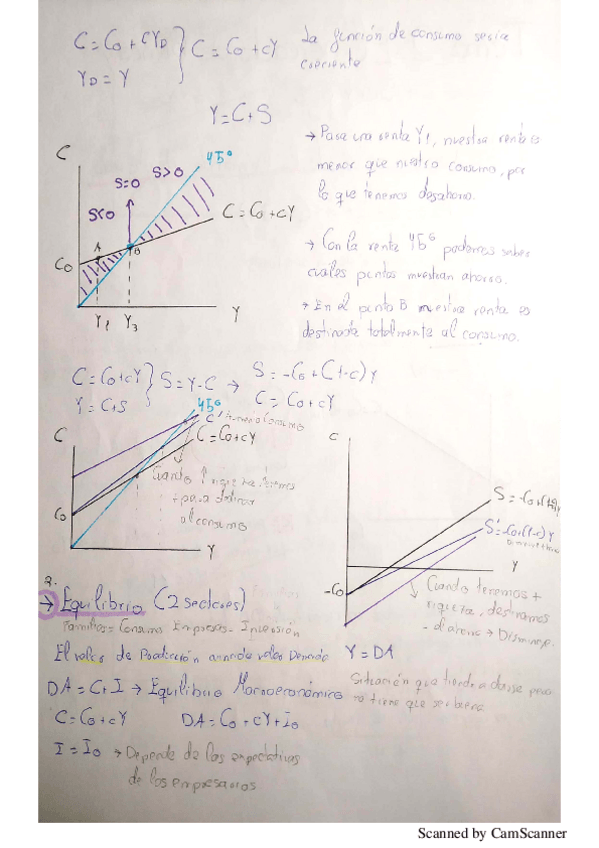 C = Co + cYD } C = Co + cY
YD = Y
La función de consumo sería
creciente
Y = C + S
→ Para una renta Y1, nuestra renta es
menor que nuestro consumo, por
lo que tenemos desahorro.
→ Con la renta 45º podemos saber
cuales puntos muestran ahorro.
→ En el punto B nuestra renta es
destinada totalmente al consumo.
C
45º
S<0
S=0
S>0
C = Co + cY
A
B
Co
Y1
Y3
Y
C = Co + cY } S = Y - C → S = -Co + (1-c)Y
Y = C + S
C = Co + cY
C
45º
C = Co + cY
Cuando ↑ riqueza tenemos
+ para destinar
al consumo
Co
Y
C
S = -Co + (1-c)Y
S' = -Co + (1-c)Y
Y
-Co
Cuando tenemos +
riqueza, destinamos
- al ahorro → Disminuye.
2.
→ Equilibrio (2 sectores)
Familias = Consumo Empresas - Inversión
El valor de Producción valor Demanda Y = DA
DA = C + I → Equilibrio Macroeconómico
Situación que tiende a darse pero
no tiene que ser buena
C = Co + cY DA = Co + cY + Io
I = Io → Depende de las expectativas
de los empresarios
Scanned by CamScanner